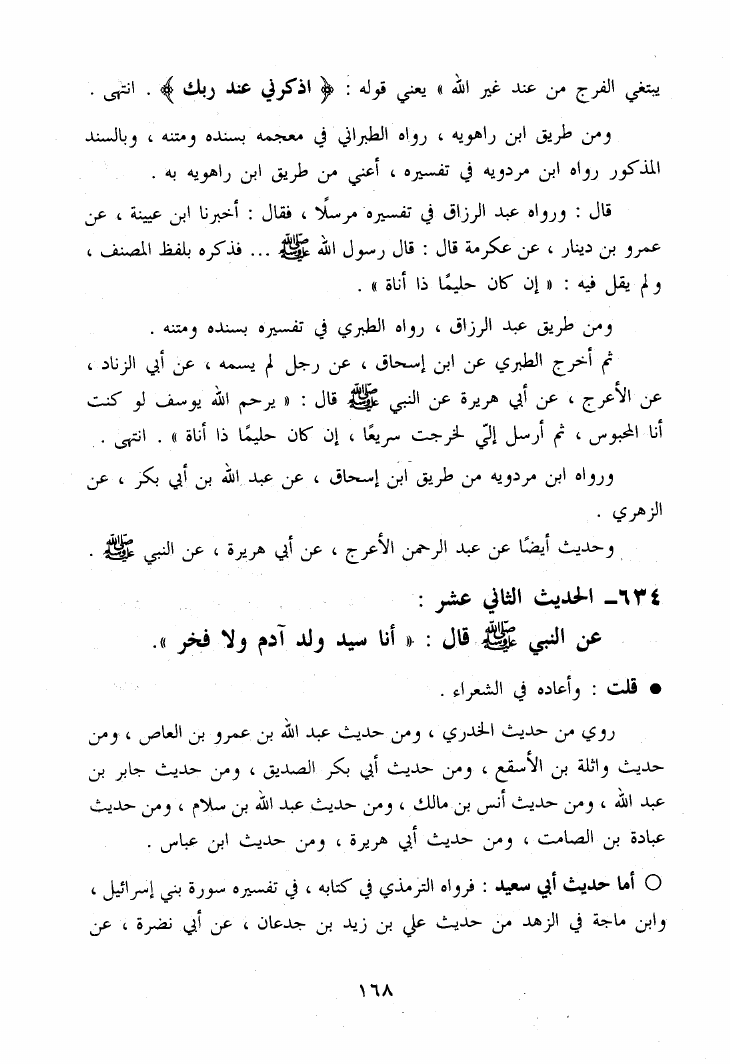 يبتغي الفرج من عند غير الله » يعني قوله : ﴿ اذكرني عند ربك ﴾ . انتهى .
ومن طريق ابن راهويه ، رواه الطبراني في معجمه بسنده ومتنه ، وبالسند
المذكور رواه ابن مردويه في تفسيره ، أعني من طريق ابن راهويه به .
قال : ورواه عبد الرزاق في تفسيره مرسلًا ، فقال : أخبرنا ابن عيينة ، عن
عمرو بن دينار ، عن عكرمة قال : قال رسول الله ﷺ ... فذكره بلفظ المصنف ،
ولم يقل فيه : « إن كان حليمًا ذا أناة » .
ومن طريق عبد الرزاق ، رواه الطبري في تفسيره بسنده ومتنه .
ثم أخرج الطبري عن ابن إسحاق ، عن رجل لم يسمه ، عن أبي الزناد ،
عن الأعرج ، عن أبي هريرة عن النبي ﷺ قال : « يرحم الله يوسف لو كنت
أنا المحبوس ، ثم أرسل إليّ لخرجت سريعًا ، إن كان حليمًا ذا أناة » . انتهى .
ورواه ابن مردويه من طريق ابن إسحاق ، عن عبد الله بن أبي بكر ، عن
الزهري .
وحديث أيضًا عن عبد الرحمن الأعرج ، عن أبي هريرة ، عن النبي ﷺ .
٦٣٤ـ الحديث الثاني عشر :
عن النبي ﷺ قال : « أنا سيد ولد آدم ولا فخر ».
● قلت : وأعاده في الشعراء .
روي من حديث الخدري ، ومن حديث عبد الله بن عمرو بن العاص ، ومن
حديث واثلة بن الأسقع ، ومن حديث أبي بكر الصديق ، ومن حديث جابر بن
عبد الله ، ومن حديث أنس بن مالك ، ومن حديث عبد الله بن سلام ، ومن حديث
عبادة بن الصامت ، ومن حديث أبي هريرة ، ومن حديث ابن عباس .
○ أما حديث أبي سعيد : فرواه الترمذي في كتابه ، في تفسيره سورة بني إسرائيل ،
وابن ماجة في الزهد من حديث علي بن زيد بن جدعان ، عن أبي نضرة ، عن
١٦٨